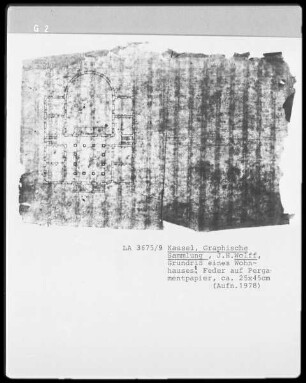 G 2
LA 3675/9 Kassel, Graphische
Sammlung , J.H.Wolff,
Grundriß eines Wohn-
hauses. Feder auf Perga
mentpapier, ca. 25x45cm
(Aufn.1978)